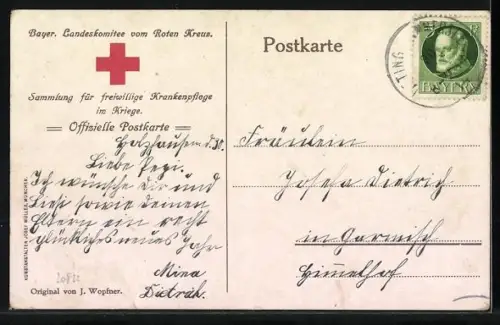 Bayer. Landeskomitee vom Roten Kreuz.
Sammlung für freiwillige Krankenpflege
im Kriege.
Offizielle Postkarte
Holzhausen d. 30.
Liebe Pepi.
Ich wünsche Dir und
Liesi sowie deinen
Eltern ein recht
glückliches neues Jahr
Mina
Dietrich.
Original von J. Wopfner.
KUNSTANSTALTEN JOSEF MÜLLER, MÜNCHEN.
Postkarte
BAYERN
Fräulein
Josefa Dietrich
in Garmisch
Himelhof